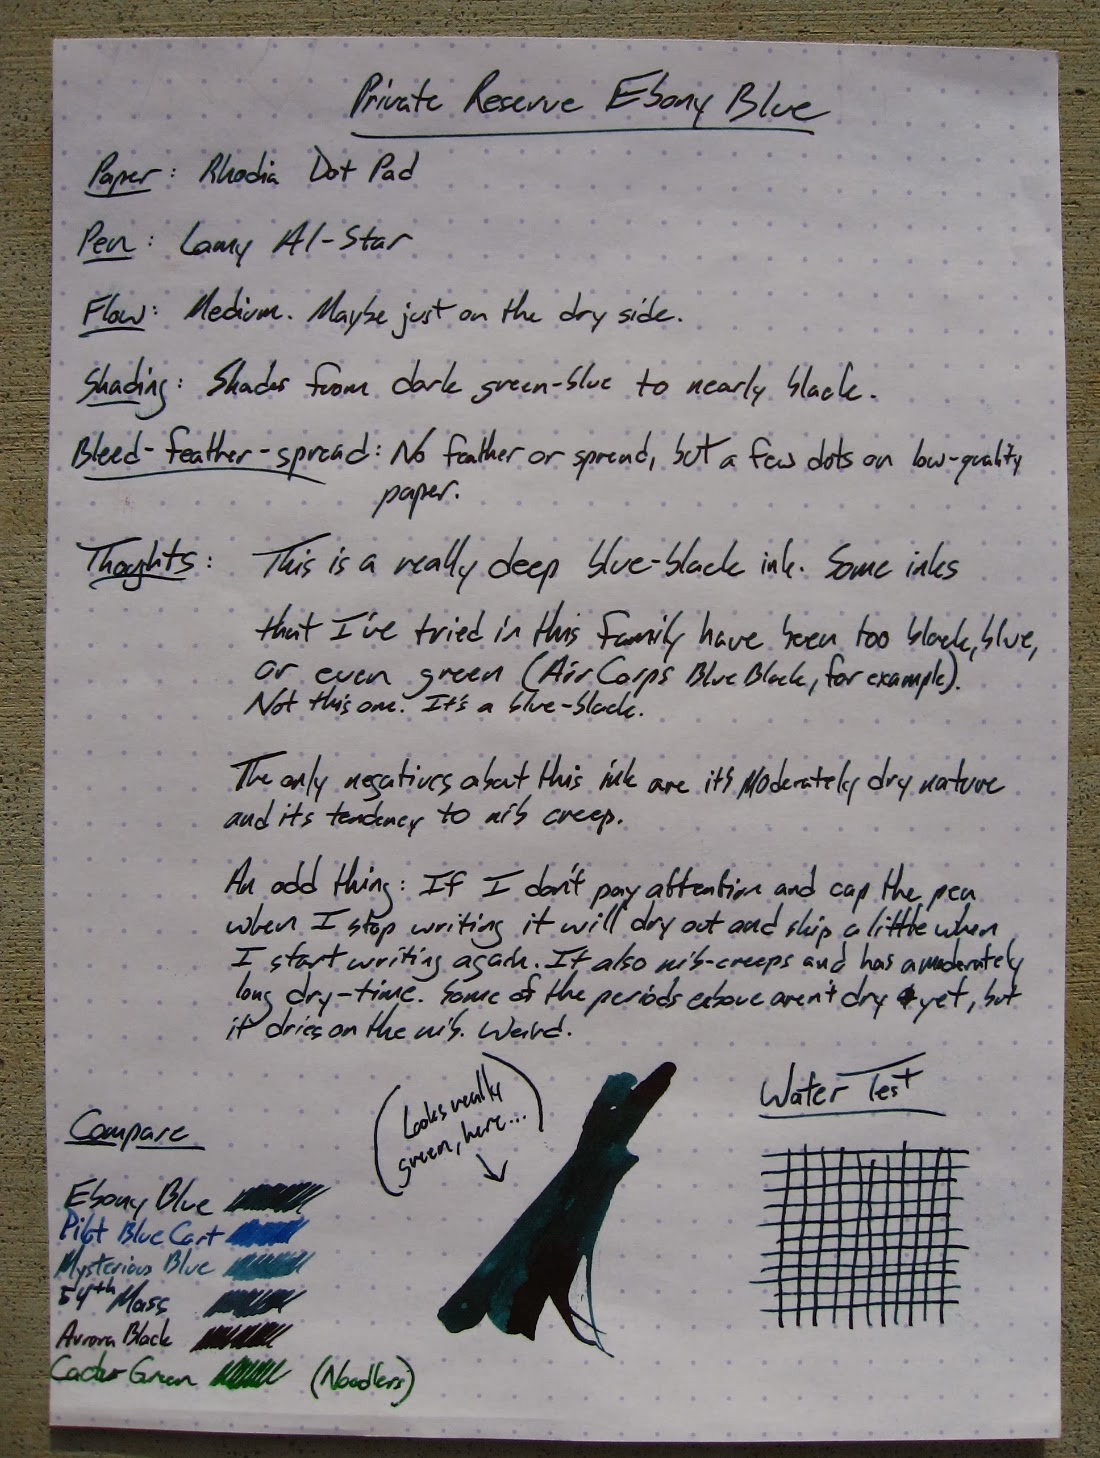 Private Reserve Ebony Blue
Paper: Rhodia Dot Pad
Pen: Lamy Al-Star
Flow: Medium. Maybe just on the dry side.
Shading: Shades from dark green-blue to nearly black.
Bleed-feather-spread: No feather or spread, but a few dots on low-quality
paper.
Thoghts: This is a really deep blue-black ink. Some inks
that I've tried in this family have been too black, blue,
or even green (Air Corps Blue Black, for example).
Not this one. It's a blue-black.
The only negatives about this ink are it's moderately dry nature
and its tendency to nib creep.
An odd thing: If I don't pay attention and cap the pen
when I stop writing it will dry out and skip a little when
I start writing again. It also nib-creeps and has a moderately
long dry-time. Some of the periods above aren't dry yet, but
it dries on the nib. Weird.
(Looks really
green, here...)
Water Test
Compare
Ebony Blue
Pilot Blue Cart
Mysterious Blue
54th Mass
Aurora Black
Cactus Green (Noodlers)